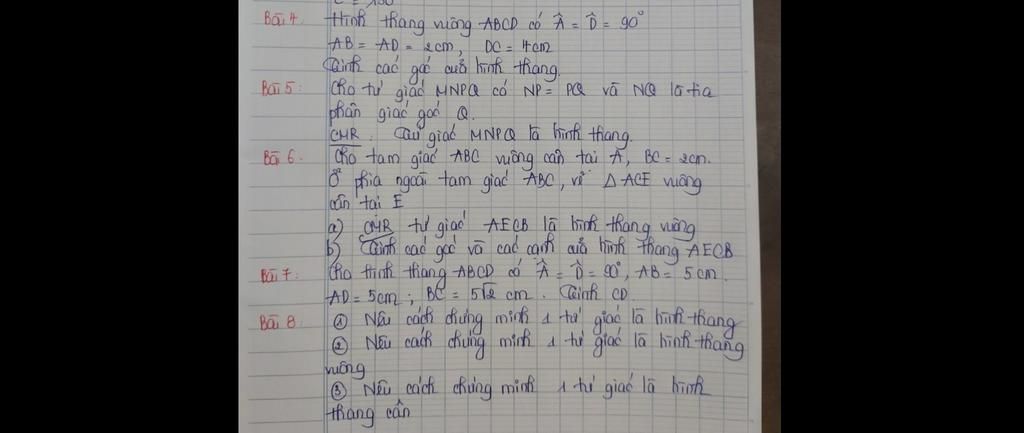 Bài 4. Hình thang vuông ABCD có Â = D̂ = 90°
AB = AD = 2cm, DC = 4cm
Tính các góc của hình thang.
Bài 5: Cho tứ giác MNPQ có NP = PQ và NQ là tia
phân giác góc Q.
CMR. Tứ giác MNPQ là hình thang.
Bài 6. Cho tam giác ABC vuông cân tại A, BC = 2cm.
Ở phía ngoài tam giác ABC, vẽ Δ ACE vuông
cân tại E
a) CMR tứ giác AECB là hình thang vuông
b) Tính các góc và các cạnh của hình thang AECB
Bài 7: Cho hình thang ABCD có Â = D̂ = 90°, AB = 5cm.
AD = 5cm ; BC = 5√2 cm. Tính CD
Bài 8. ① Nêu cách chứng minh 1 tứ giác là hình thang
② Nêu cách chứng minh 1 tứ giác là hình thang
vuông
③ Nêu cách chứng minh 1 tứ giác là hình
thang cân